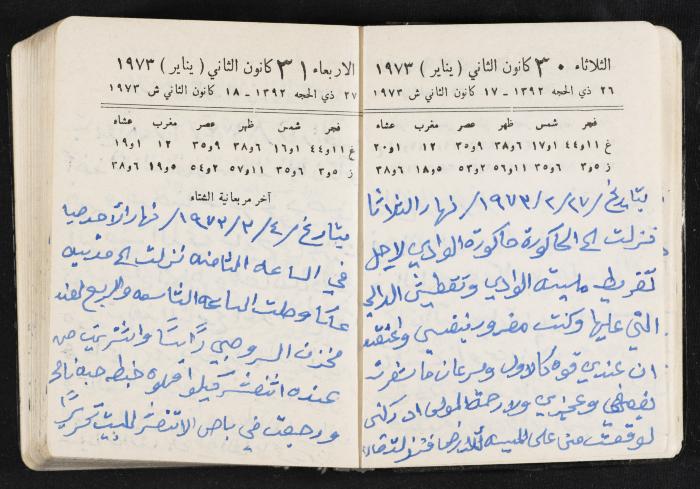 الثلاثاء ٣٠ كانون الثاني ( يناير ) ١٩٧٣
٢٦ ذي الحجه ١٣٩٢ ـ ١٧ كانون الثاني ش ١٩٧٣
فجر شمس ظهر عصر مغرب عشاء
غ ١١و٤٤ ١و١٧ ٦و٣٨ ٩و٣٥ ١٢ ١و٢٠
ز ٥و٣ ٦و٣٥ ١١و٥٦ ٢و٥٣ ٥و١٨ ٦و٣٨
بتاريخ /٢٧/ ٢/ ١٩٧٣/ نهار الثلاثا
نزلت الى الحاكورة حاكورة الوادي لاجل
تفريط ميسة الوادي وتقطيش الدالي
التي عليها وكنت مغرور بنفسي واعتقد
ان عندي قوه كالاول وسرعان ما شعرت
بضعفي وعجزي ولا رحمة المولى ادركتني
لوقعت من على الميسه للارض
الاربعاء ٣١ كانون الثاني ( يناير ) ١٩٧٣
٢٧ ذي الحجه ١٣٩٢ ـ ١٨ كانون الثاني ش ١٩٧٣
فجر شمس ظهر عصر مغرب عشاء
غ ١١و٤٤ ١و١٦ ٦و٣٨ ٩و٣٥ ١٢ ١و١٩
ز ٥و٣ ٦و٣٥ ١١و٥٧ ٢و٥٤ ٥و١٩ ٦و٣٨
آخر مربعانية الشتاء
بتاريخ /٤/ ٣/ ١٩٧٣/ نهار الاحد صباحا
في الساعه الثامنه نزلت الى مدينه
عكا وصلت الساعه التاسعه والربع لعند
مخزن السروجي رأيسًا واشتريت من
عنده اثنعشر كيلو قمبوه حبه
ورجعت في باص الاثنعشر للبيت